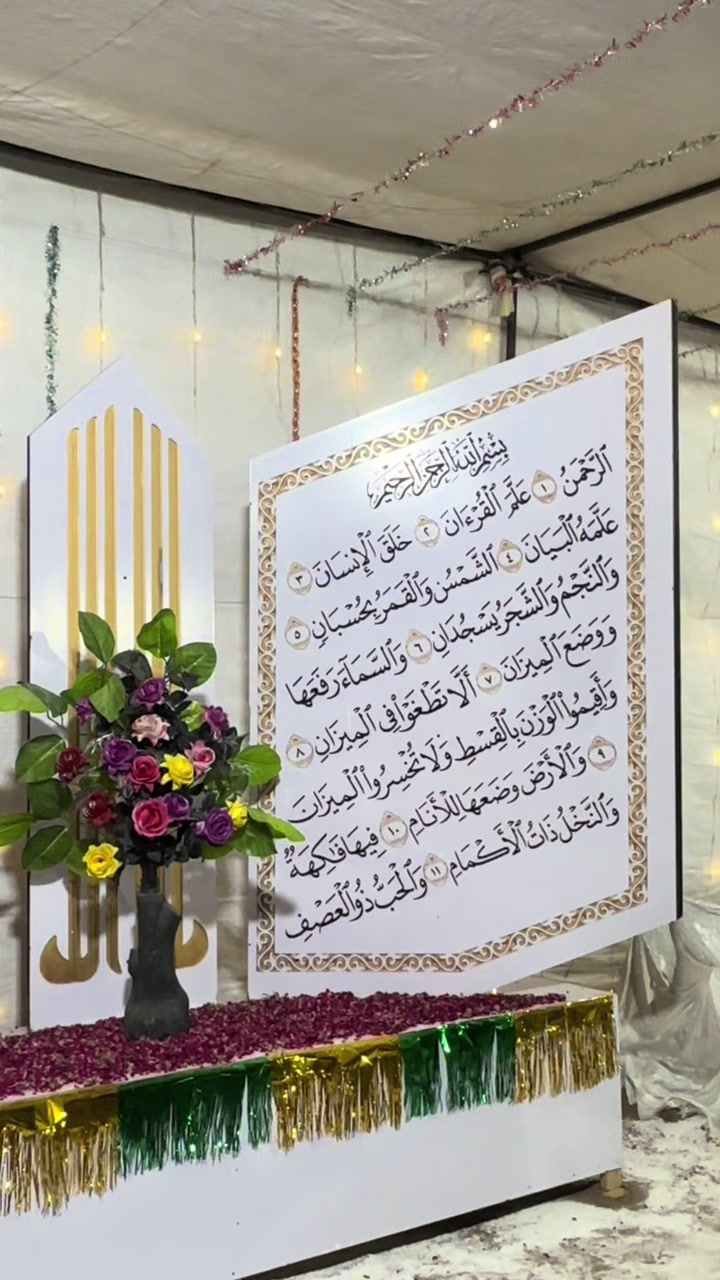 بِسْمِ ٱللَّهِ ٱلرَّحْمَٰنِ ٱلرَّحِيمِ
ٱلرَّحْمَٰنُ ١ عَلَّمَ ٱلْقُرْءَانَ ٢ خَلَقَ ٱلْإِنسَانَ ٣
عَلَّمَهُ ٱلْبَيَانَ ٤ ٱلشَّمْسُ وَٱلْقَمَرُ بِحُسْبَانٍ ٥
وَٱلنَّجْمُ وَٱلشَّجَرُ يَسْجُدَانِ ٦ وَٱلسَّمَآءَ رَفَعَهَا
وَوَضَعَ ٱلْمِيزَانَ ٧ أَلَّا تَطْغَوْا۟ فِى ٱلْمِيزَانِ ٨
وَأَقِيمُوا۟ ٱلْوَزْنَ بِٱلْقِسْطِ وَلَا تُخْسِرُوا۟ ٱلْمِيزَانَ
٩ وَٱلْأَرْضَ وَضَعَهَا لِلْأَنَامِ ١٠ فِيهَا فَٰكِهَةٌ
وَٱلنَّخْلُ ذَاتُ ٱلْأَكْمَامِ ١١ وَٱلْحَبُّ ذُو ٱلْعَصْفِ